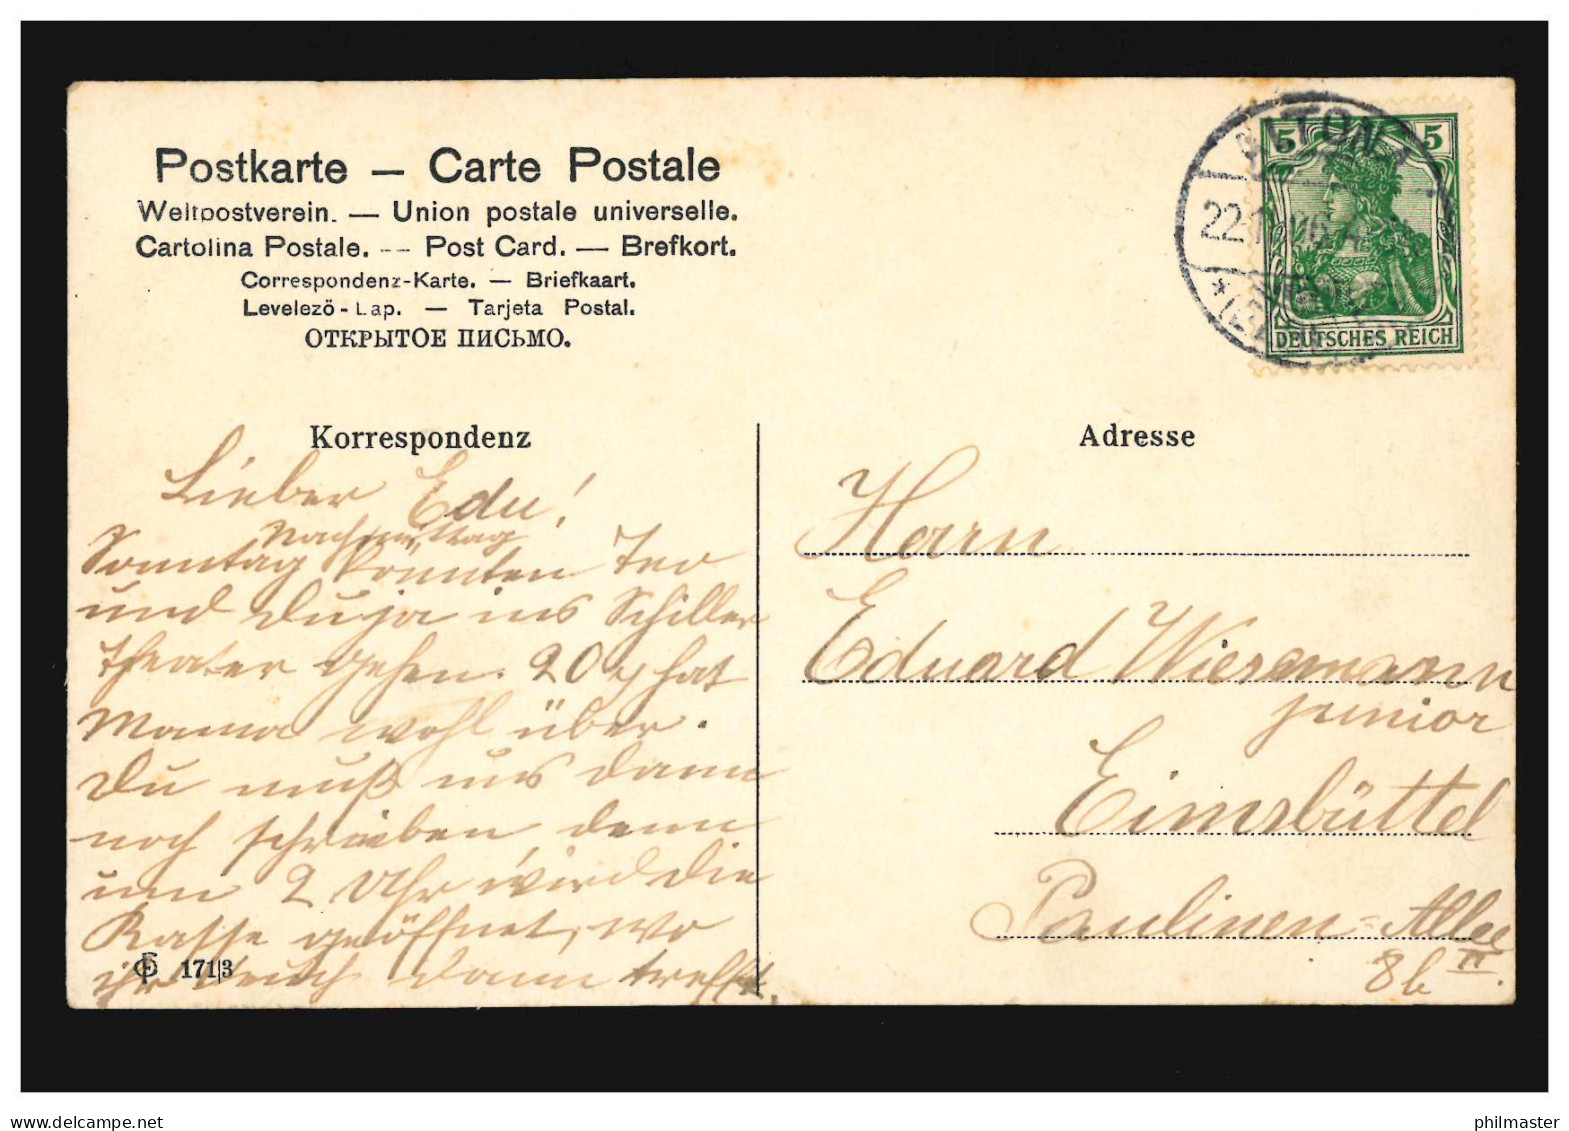 Postkarte — Carte Postale
Weltpostverein. — Union postale universelle.
Cartolina Postale. -- Post Card. — Brefkort.
Correspondenz-Karte. — Briefkaart.
Levelezö - Lap. — Tarjeta Postal.
ОТКРЫТОЕ ПИСЬМО.
5 5
DEUTSCHES REICH
22.
Korrespondenz
Adresse
Lieber Edu!
Nachmittag
Sonntag könnten
und Du ja ins Schiller
theater gehen. 20 hat
Mama wohl über.
Du mußt uns dann
noch schreiben, denn
um 2 Uhr wird die
Kasse geöffnet, wo
ihr Euch dann trefft.
171|3
Herrn
Eduard Wiesemann
junior
Eimsbüttel
Paulinen-Allee
8b II.
delcampe.net
philmaster